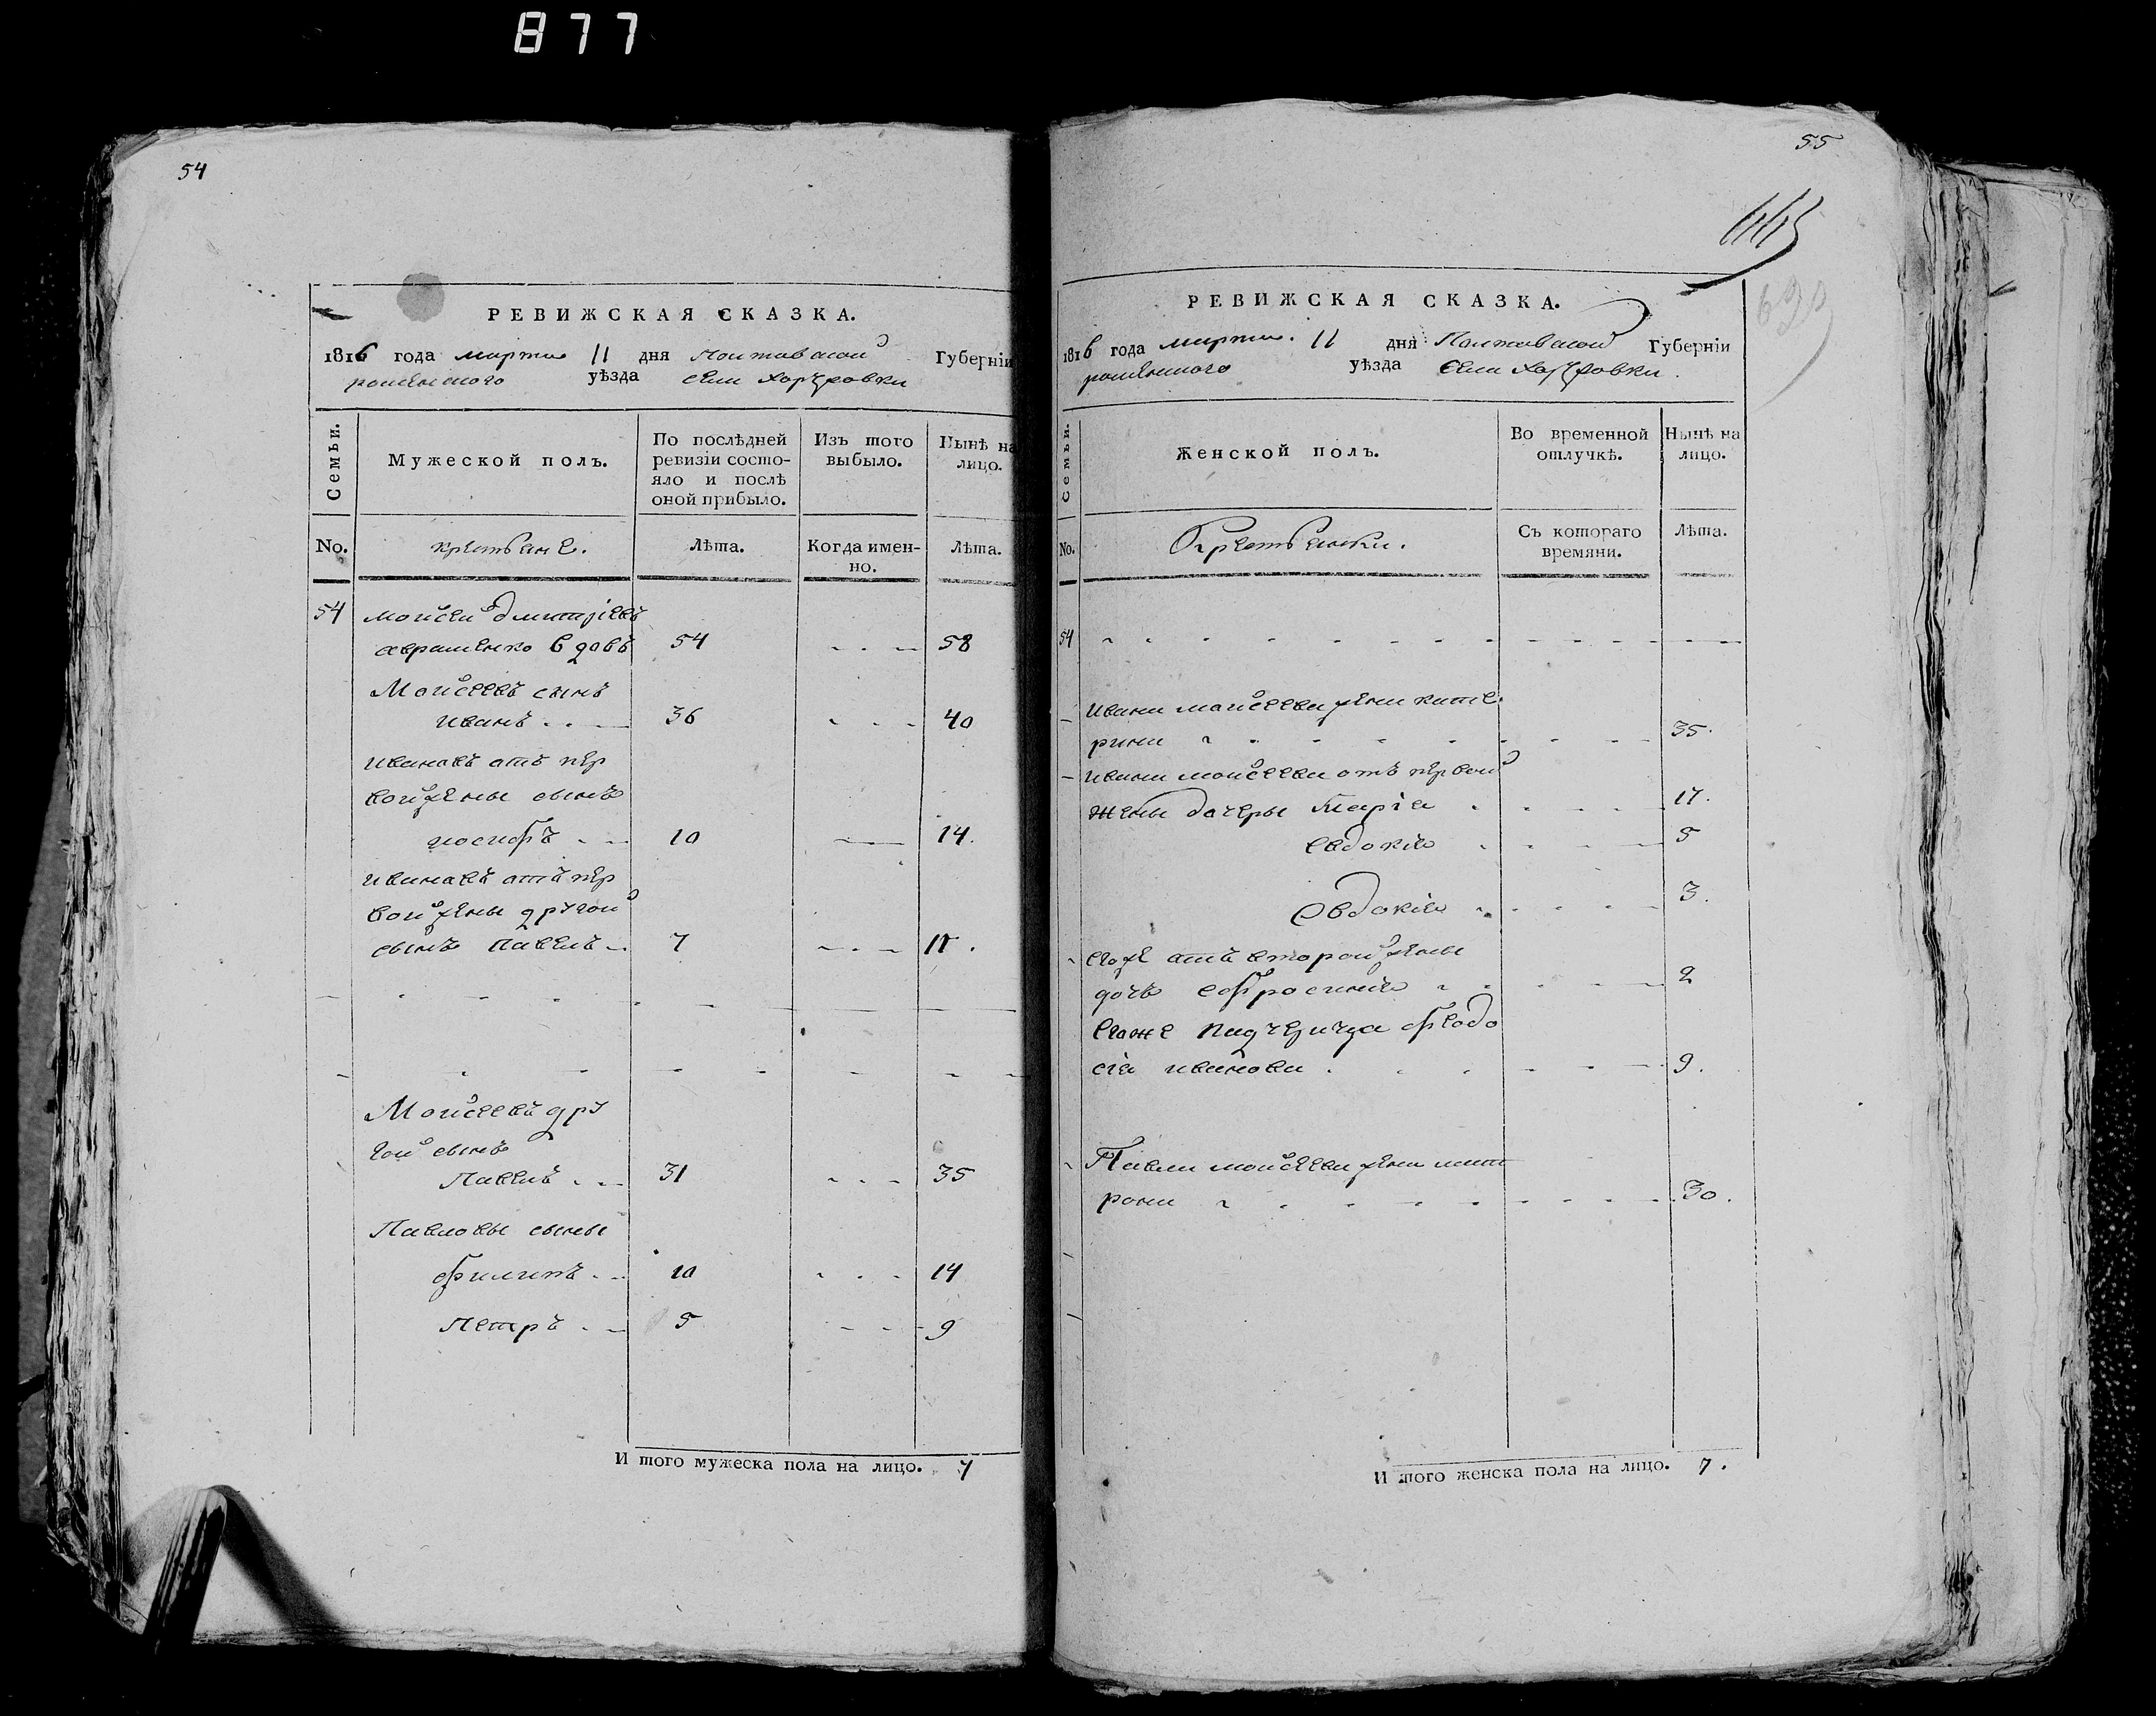 877
54
РЕВИЖСКАЯ СКАЗКА.
1816 года марта 11 дня Полтавской Губерніи
роменского уѣзда села Хоружовки
Семьи.
Мужеской полъ.
По послѣдней ревизіи состо-
яло и послѣ
оной прибыло.
Изъ того
выбыло.
Нынѣ на
лицо.
No.
крестьяне.
Лѣта.
Когда имен-
но.
Лѣта.
54 Мойсей дмитріевъ
авраменко вдовъ 54 58
Мойсеевъ сынъ
иванъ 36 40
ивановъ отъ пер
вой жены сынъ
иосифъ 10 14.
ивановъ отъ пер
вой жены другой
сынъ павелъ 7 11.
Мойсеевъ дру
гой сынъ
Павелъ 31 35
Павловы сыны
филипъ 10 14
Петръ 5 9
И того мужеска пола на лицо. 7
55
РЕВИЖСКАЯ СКАЗКА.
1816 года марта. 11 дня Полтавской Губерніи
роменского уѣзда Села Хоружовки.
Семьи.
Женской полъ.
Во временной
отлучкѣ.
Нынѣ на
лицо.
No.
Крестьянки.
Съ котораго
времяни.
Лѣта.
54
ивана мойсеева жена кате
рина 35.
ивана мойсеева отъ первой
жены дочеры Марія 17.
евдокія 5
Евдокія 3.
егоже отъ второй жены
дочь ефросинія 2
егоже падчерица феодо
сія иванова 9.
Павла мойсеева жена мат
рона 30.
И того женска пола на лицо. 7.